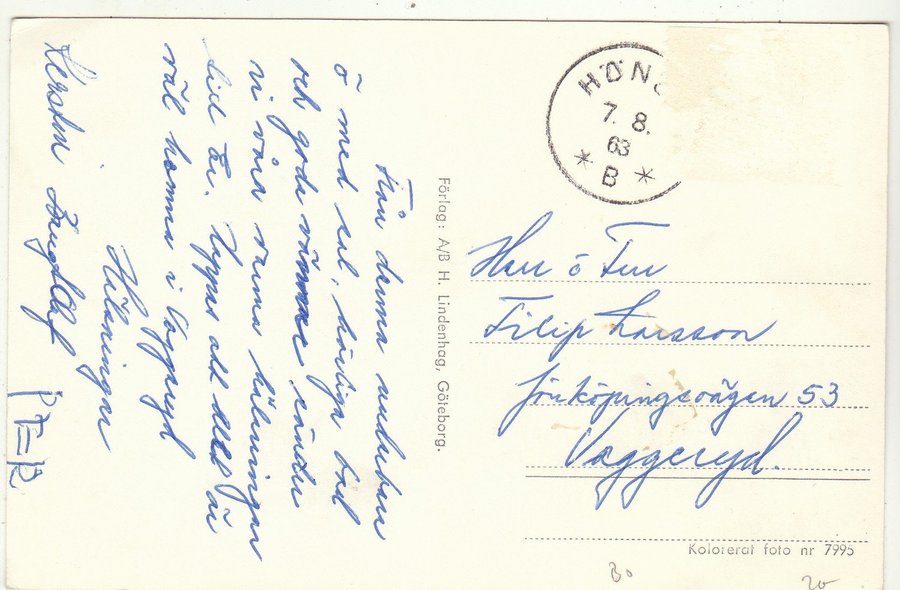 Från denna underbara
ö med sol, härliga bad
och goda vänner sänder
vi våra varma hälsningar
till Er. Hoppas att allt är
väl hemma i Vaggeryd
Hälsningar
Kersten Bengt Olof
Förlag: A/B H. Lindenhag, Göteborg.
HÖN
7. 8.
63
* B *
Herr o Fru
Filip Larsson
Jönköpingsvägen 53
Vaggeryd.
Koloterat foto nr 7995
Bo
20